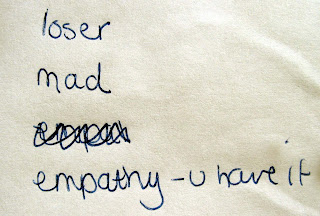 loser
mad
empathy - u have it